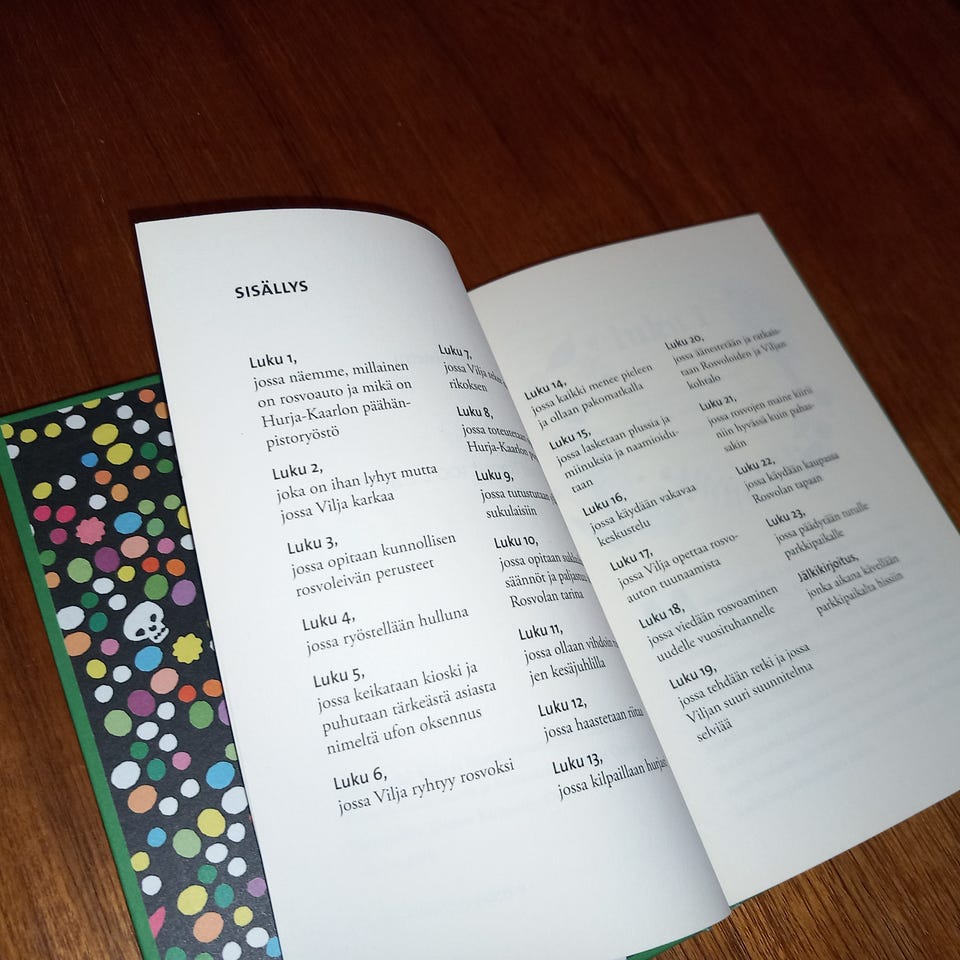 SISÄLLYS
Luku 1,
jossa näemme, millainen
on rosvoauto ja mikä on
Hurja-Kaarlon päähän-
pistoryöstö
Luku 2,
joka on ihan lyhyt mutta
jossa Vilja karkaa
Luku 3,
jossa opitaan kunnollisen
rosvoleivän perusteet
Luku 4,
jossa ryöstellään hulluna
Luku 5,
jossa keikataan kioski ja
puhutaan tärkeästä asiasta
nimeltä ufon oksennus
Luku 6,
jossa Vilja ryhtyy rosvoksi
Luku 7,
jossa Vilja
rikoksen
Luku 8,
jossa toteutetaan
Hurja-Kaarlon
Luku 9,
jossa tutustutaan
sukulaisiin
Luku 10,
jossa opitaan
säännöt ja paljastuu
Rosvolan tarina
Luku 11,
jossa ollaan vihdoin
jen kesäjuhlilla
Luku 12,
jossa haastetaan riitaa
Luku 13,
jossa kilpaillaan
Luku 14,
jossa kaikki menee pieleen
ja ollaan pakomatkalla
Luku 15,
jossa lasketaan plussia ja
miinuksia ja naamioidu-
taan
Luku 16,
jossa käydään vakavaa
keskustelu
Luku 17,
jossa Vilja opettaa rosvo-
auton tuunaamista
Luku 18,
jossa viedään rosvoaminen
uudelle vuosituhannelle
Luku 19,
jossa tehdään retki ja jossa
Viljan suuri suunnitelma
selviää
Luku 20,
jossa äänestetään ja ratkais-
taan Rosvoloiden ja Viljan
kohtalo
Luku 21,
jossa rosvojen maine kiirii
niin hyvässä kuin pahas-
sakin
Luku 22,
jossa käydään kaupassa
Rosvolan tapaan
Luku 23,
jossa päädytään tutulle
parkkipaikalle
Jälkikirjoitus,
jonka aikana kävellään
parkkipaikalta hissiin